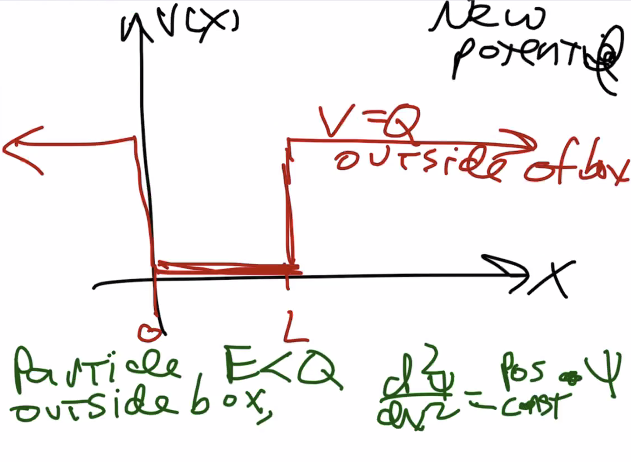 V(X)
New
potential
V=Q
outside of box
X
0
L
Particle, E<Q
outside box,
d²ψ/dx² = pos const • ψ